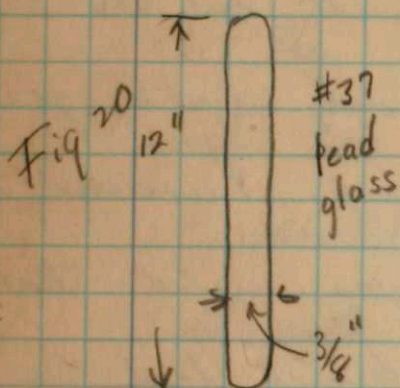 Fig 20
12"
#37
pead
glass
3/8"